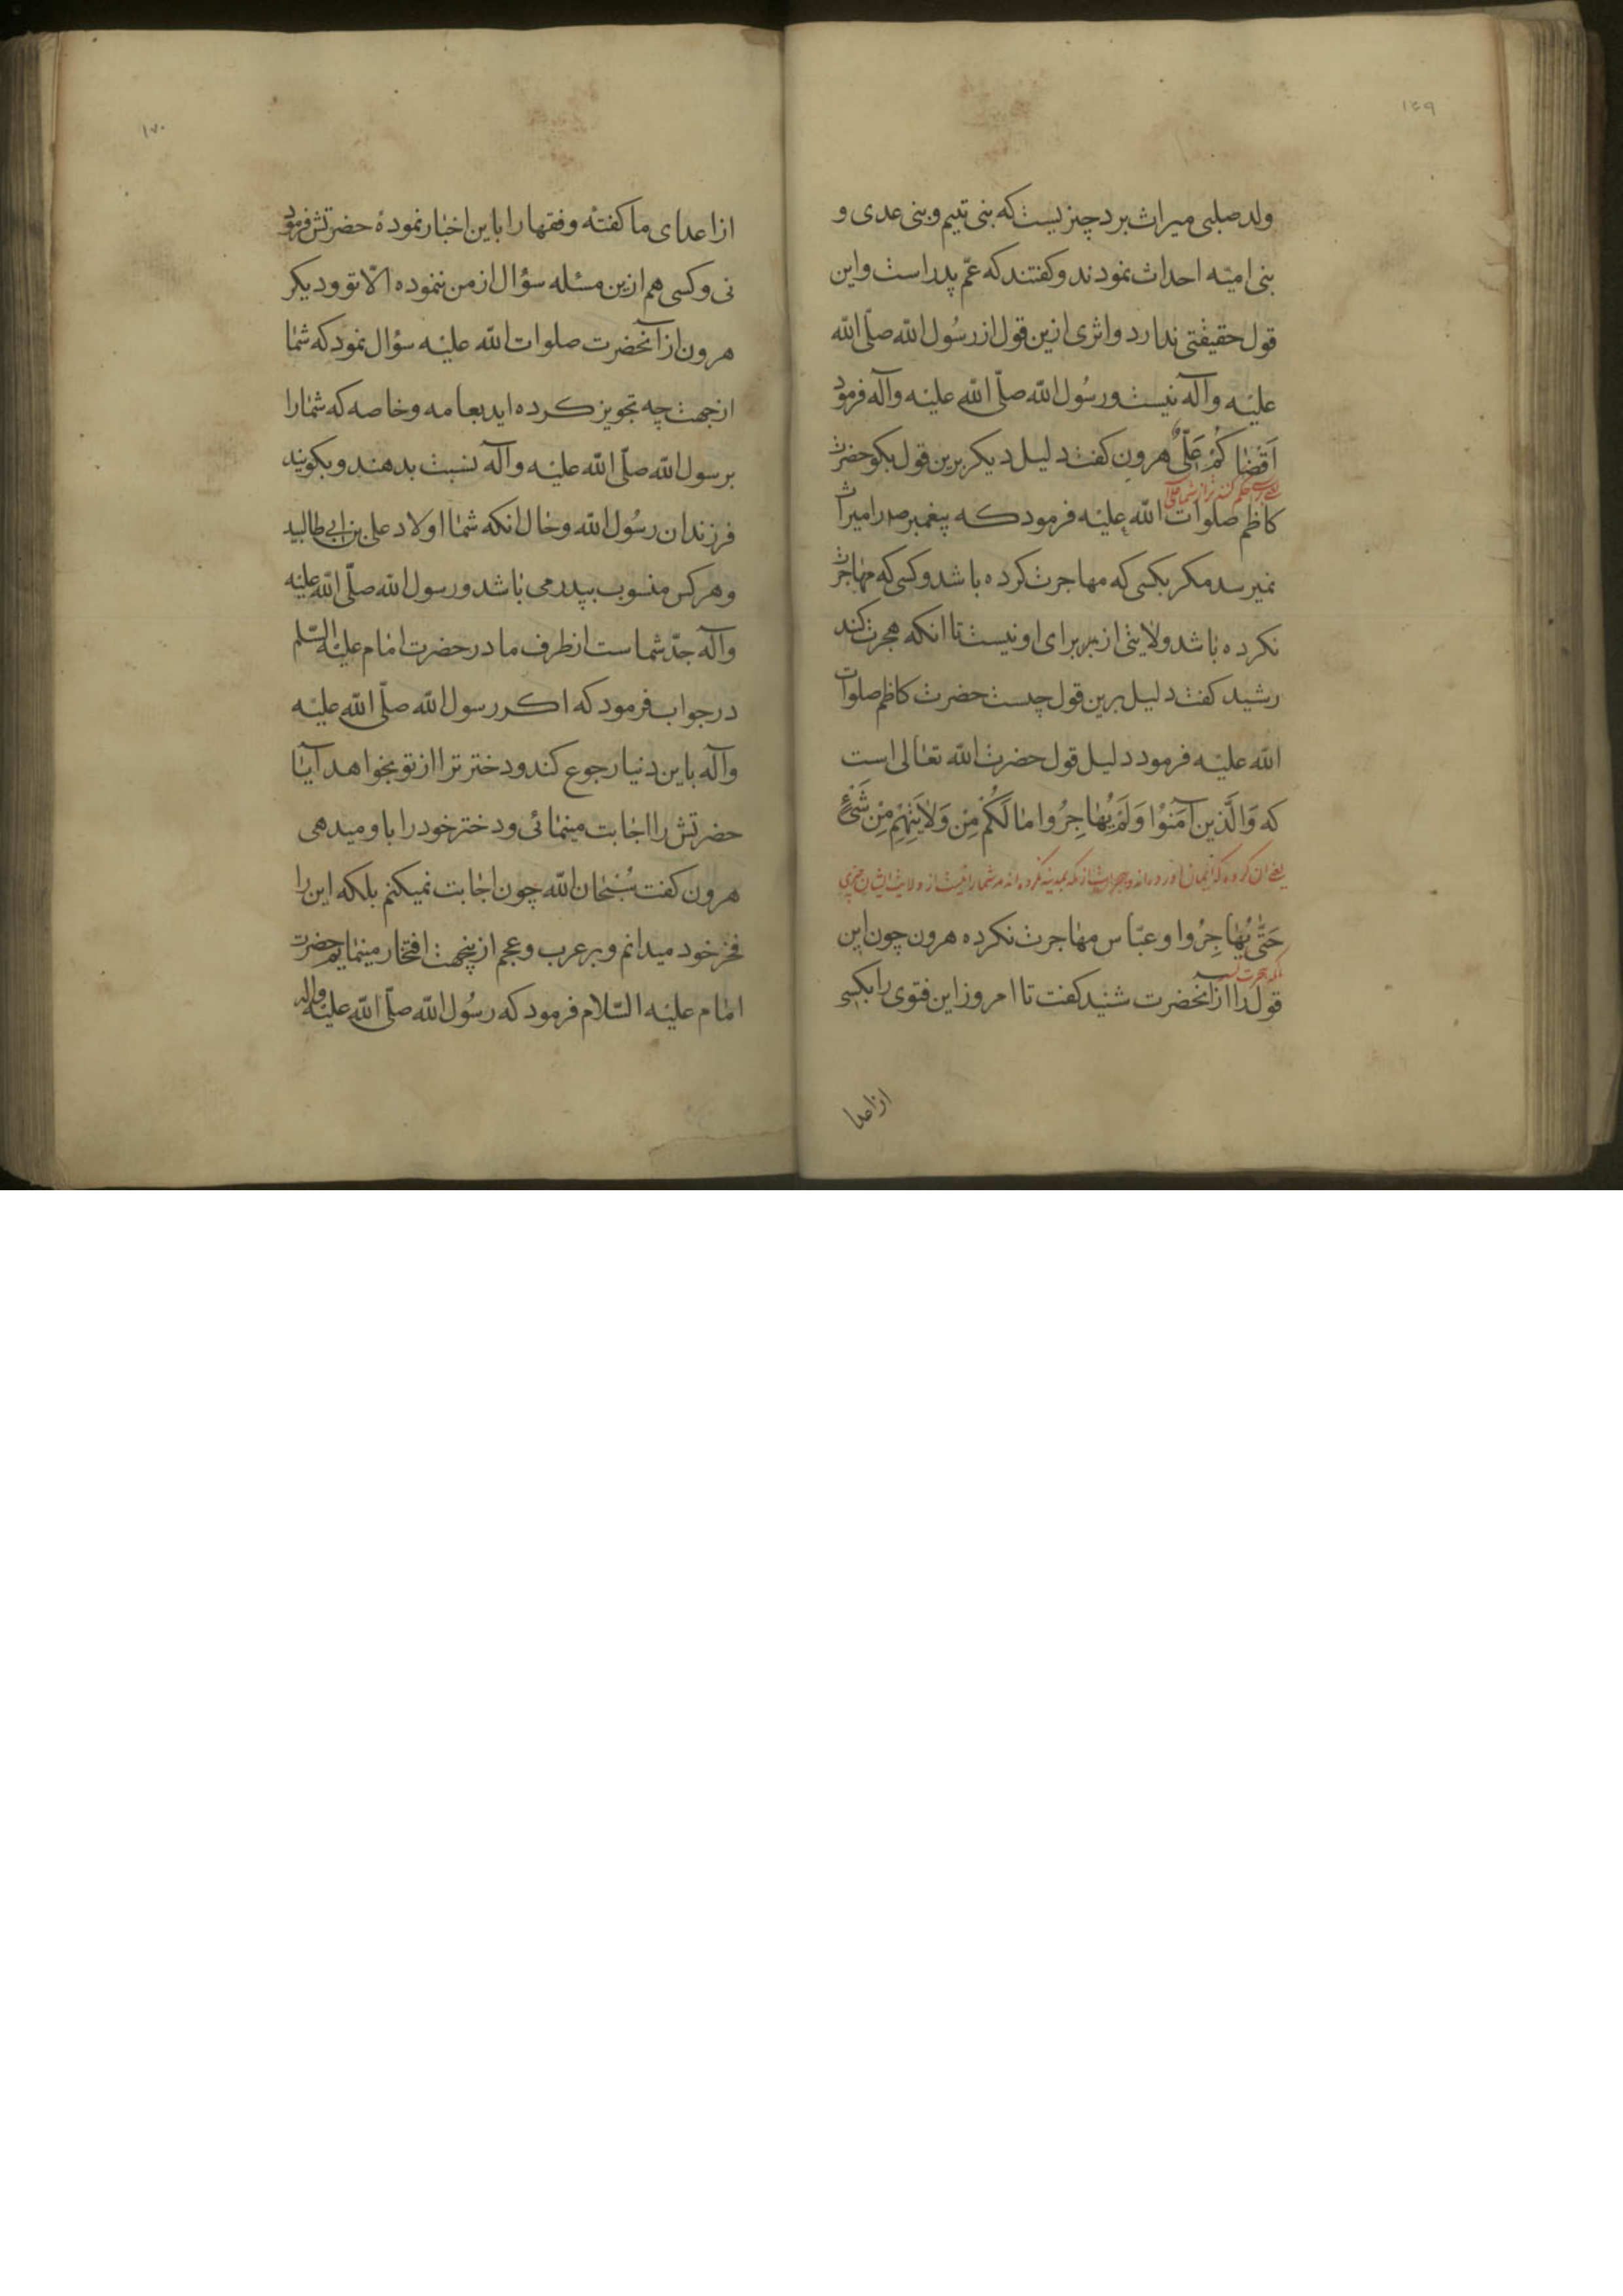 ۱۶۹
ولد صلبی میراث برد چیزیست که بنی تیم و بنی عدی و
بنی امیّه احداث نمودند و کفتند که عمّ پدر است و این
قول حقیقتی ندارد و اثری ازین قول از رسُول اللّه صلّی اللّه
علیْه و آله نیست و رسُول اللّه صلّی اللّه علیْه و آله فرمود
اَقضٰاکُمْ عَلیٌّ هرون کفت دلیل دیکر برین قول بکو حضرت
یعنی حکم کننده تر از شما علی
کاظم صلوات اللّه علیْه فرمود که پیغمبر ص را میراث
نمیرسد مکر بکسی که مهاجرت کرده باشد و کسی که مهاجرت
نکرده باشد ولایتی از برای او نیست تا انکه هجرت کند
رشید کفت دلیل برین قول چیست حضرت کاظم صلوات
اللّه علیْه فرمود دلیل قول حضرت اللّه تعٰالی است
که وَالَّذین آمَنوُا وَلَمْ یُهٰاجِرُوا مٰا لَکُمْ مِن وَلاٰیَتِهِمْ مِنْ شَیْءٍ
یعنی ان کروه که ایمان اورده اند و هجرت از مکه بمدینه نکرده اند مر شما را نیست از ولایت ایشان چیزی
حَتّٰی یُهٰاجِرُوا و عبّاس مهاجرت نکرده هرون چون این
تا که هجرت کنند
قول را از آنحضرت شنید کفت تا امروز این فتوی را بکسی
از اعدا
۱۷۰
از اعدای ما کفتهٔ و فقها را باین اخبار نمودهٔ حضرتش فرمود
نی و کسی هم ازین مسئله سؤال از من ننموده الّا تو و دیکر
هرون از آنحضرت صلوات اللّه علیْه سؤال نمود که شمٰا
از جهت چه تجویز کرده اید بعامه و خاصه که شمٰا را
برسول اللّه صلّی اللّه علیْه و آله نسبت بدهند و بکویند
فرزندان رسُول اللّه و حٰال انکه شمٰا اولاد علی بن ابی طالبید
و هر کس منسوب بپدر می باشد و رسول اللّه صلّی اللّه علیْه
و آله جدّ شماست از طرف مادر حضرت امٰام علیْه السّلم
در جواب فرمود که اکر رسول اللّه صلّی اللّه علیْه
و آله باین دنیا رجوع کند و دختر ترا از تو بخواهد آیٰا
حضرتش را اجٰابت مینمٰائی و دختر خود را باو میدهی
هرون کفت سُبْحٰان اللّه چون اجٰابت نمیکنم بلکه این را
فخر خود میدانم و بر عرب و عجم ازینجهت افتخار مینمٰایم حضرت
امٰام علیْه السّلام فرمود که رسُول اللّه صلّی اللّه علیْه و اله